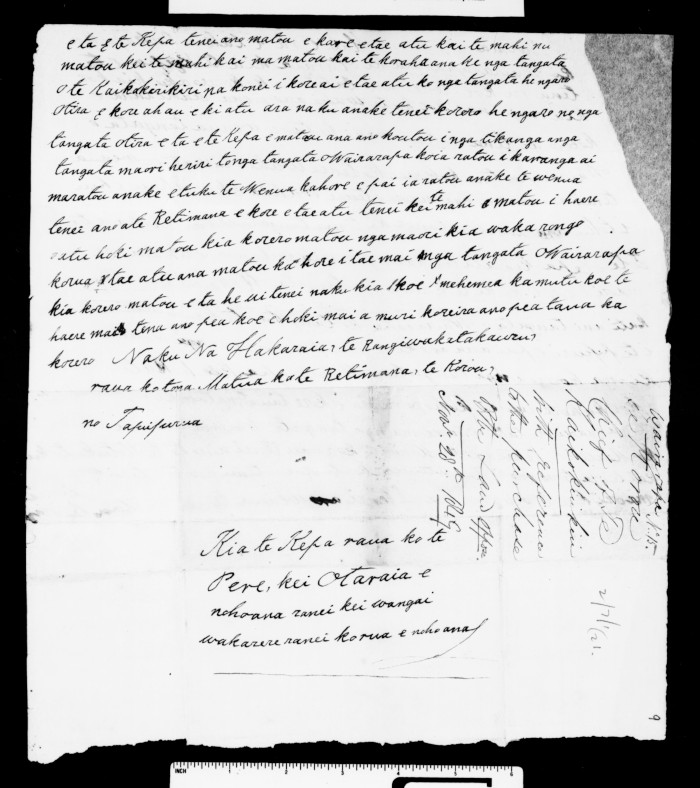 e ta e te Kepa tenei ano matou e kore e tae atu kai te mahi nu
matou kei te mahi kai ma matou kai te koraha ana ke nga tangata
o te Kaikokirikiri na konei i kore ai e tae atu ko nga tangata he ngaro
Otira e kore ahau e ki atu ara naku anake tenei korero he ngaro no nga
tangata Otira e ta e te Kepa e matou ana ano koutou i nga tikanga anga
tangata maori heriri tonga tangata Wairarapa koia ratou i karanga ai
maratou anake e tuku te Wenua kahore e pai ia ratou anake te wenua
tenei ano ate Retimana e kore e tae atu tenei kei te mahi e matou i haere
atu hoki matou kia korero matou nga maori kia waka rongo
korua tae atu ana matou ka hore i tae mai nga tangata O Wairarapa
kia korero matou e ta he ui tenei naku kia koe mehemea ka mutu koe te
haere mai tena ano pea koe e hoki mai a muri koreira ano pea taua ka
korero Naku Na Hakaraia, te Rangiwakatakauru,
raua ko tona Matua ko te Retimana, te Korou,
no Tapupurua
Kia te Kepa raua ko te
Pere, kei Otaraia e
nohoana ranei kei wangai
wakarere ranei korua e nohoana
Wairarapa No. 15.
Chief
Kaikokirikiri
with reference
to the purchase
of the Land
Novr. 28th
2/7/21.
9
INCH 1 2 3 4 5 6